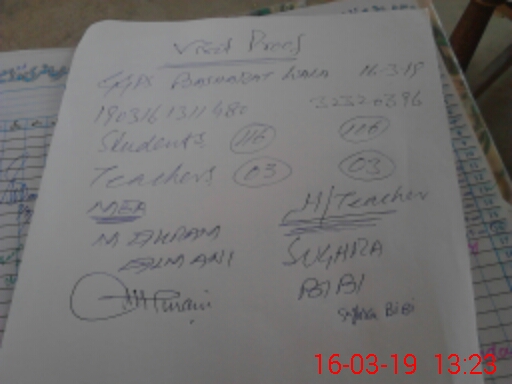 Visit Proof
GGPS BASHARAT WALA 16-3-19
190316 1311480 32320396
Students 116 116
Teachers 03 03
MEA H/Teacher
M AKRAM SUGHRA
BIBI
Sughra BiBi
16-03-19 13:23